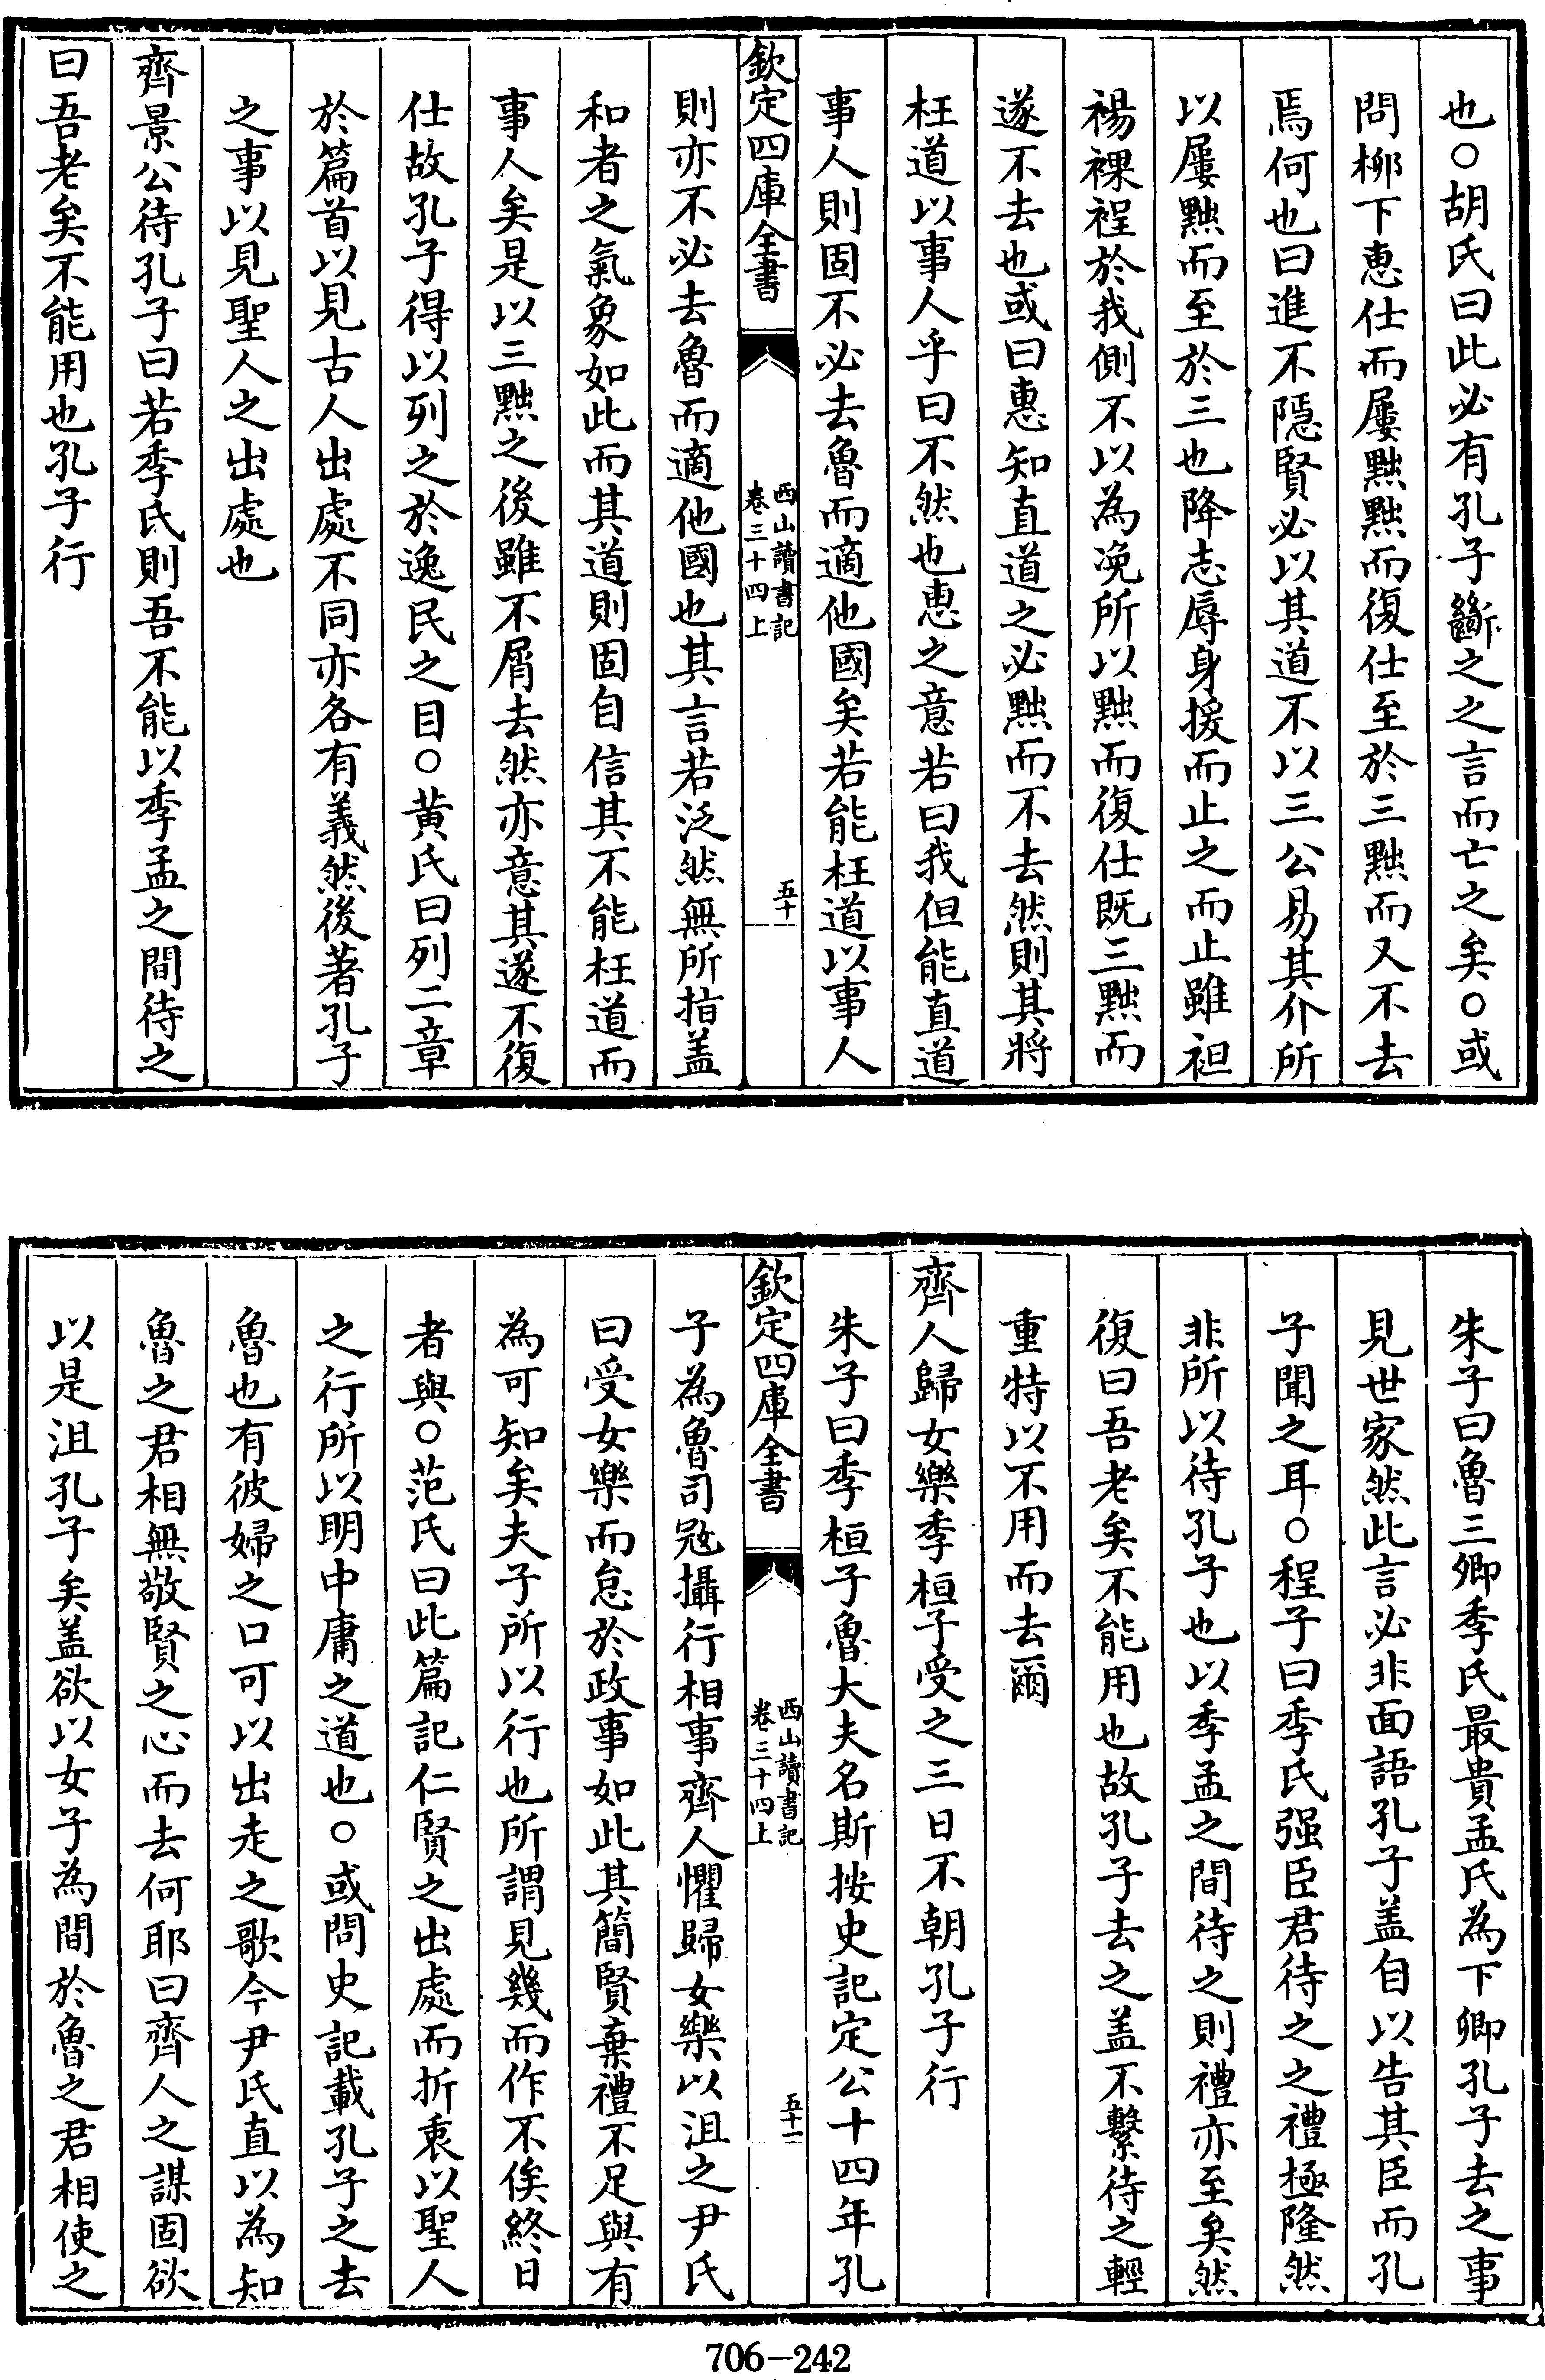 也○胡氏曰此必有孔子斷之之言而亡之矣○或
問柳下惠仕而屢黜黜而復仕至於三黜而又不去
焉何也曰進不隱賢必以其道不以三公易其介所
以屢黜而至於三也降志辱身援而止之而止雖袒
裼裸裎於我側不以為浼所以黜而復仕既三黜而
遂不去也或曰惠知直道之必黜而不去然則其將
枉道以事人乎曰不然也惠之意若曰我但能直道
事人則固不必去魯而適他國矣若能枉道以事人
欽定四庫全書
西山讀書記
卷三十四上
五十
則亦不必去魯而適他國也其言若泛然無所指盖
和者之氣象如此而其道則固自信其不能枉道而
事人矣是以三黜之後雖不屑去然亦意其遂不復
仕故孔子得以列之於逸民之目○黄氏曰列二章
於篇首以見古人出處不同亦各有義然後著孔子
之事以見聖人之出處也
齊景公待孔子曰若季氏則吾不能以季孟之間待之
曰吾老矣不能用也孔子行
朱子曰魯三卿季氏最貴孟氏為下卿孔子去之事
見世家然此言必非面語孔子盖自以告其臣而孔
子聞之耳○程子曰季氏强臣君待之之禮極隆然
非所以待孔子也以季孟之間待之則禮亦至矣然
復曰吾老矣不能用也故孔子去之盖不繫待之輕
重特以不用而去爾
齊人歸女樂季桓子受之三日不朝孔子行
朱子曰季桓子魯大夫名斯按史記定公十四年孔
欽定四庫全書
西山讀書記
卷三十四上
五十一
子為魯司宼攝行相事齊人懼歸女樂以沮之尹氏
曰受女樂而怠於政事如此其簡賢棄禮不足與有
為可知矣夫子所以行也所謂見幾而作不俟終日
者與○范氏曰此篇記仁賢之出處而折衷以聖人
之行所以明中庸之道也○或問史記載孔子之去
魯也有彼婦之口可以出走之歌今尹氏直以為知
魯之君相無敬賢之心而去何耶曰齊人之謀固欲
以是沮孔子矣盖欲以女子為間於魯之君相使之
706-242